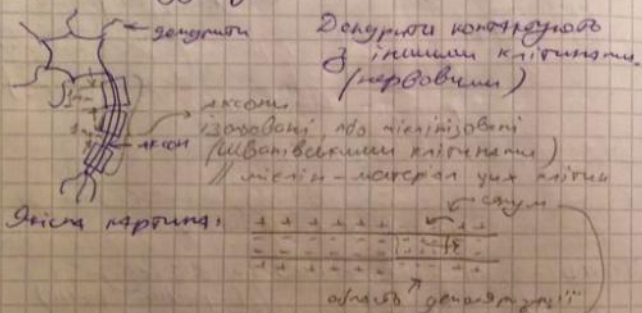 дендрити
Дендрити контактують
з іншими клітинами
(нервовими)
1mm
аксони
ізольовані або мієлінізовані
аксон
(Шванівськими клітинами)
// мієлін - матеріал цих клітин
Якісна картина:
+ + + + + + +
- - - - - -
+ + + + + + +
область деполяризації